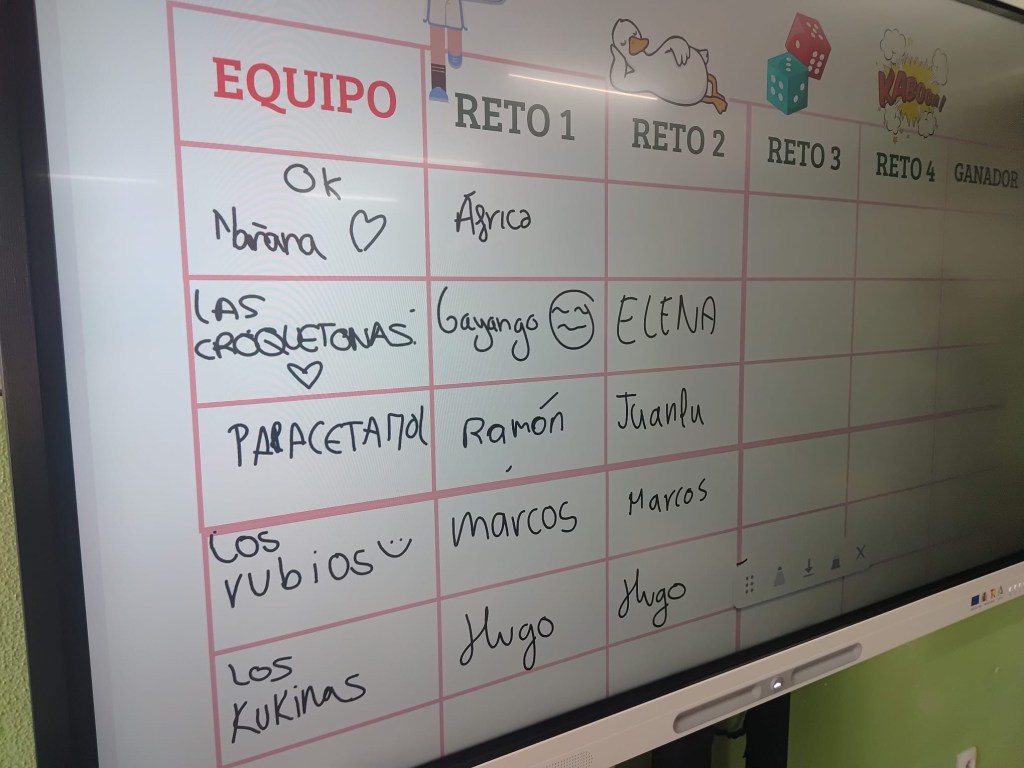 EQUIPO RETO 1 RETO 2 RETO 3 RETO 4 GANADOR
KABOOM!
Ok
Mañana África
LAS
CROQUETONAS. Gayango ELENA
PARACETAMOL Ramón Juanlu
LOS
rubios marcos Marcos
LOS
KUKINAS Hugo Hugo